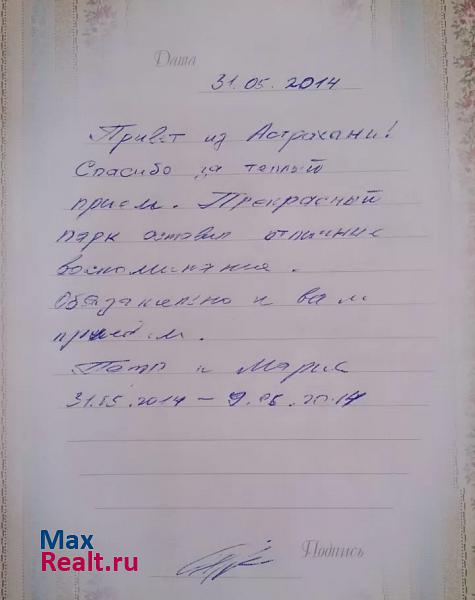 Дата
31.05.2014
Привет из Астрахани!
Спасибо за теплый
прием. Прекрасный
парк оставил отличные
воспоминания.
Обязательно к вам
приедем.
и Мария
31.05.2014 – 9.06.2014
Подпись
Max
Realt.ru